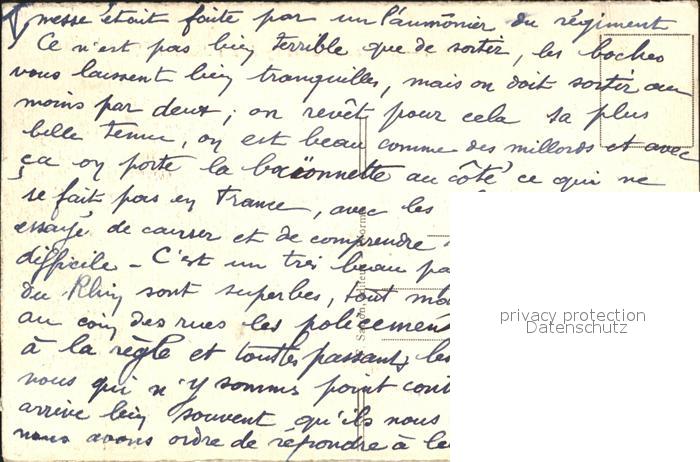 messe était faite par un l'aumônier du régiment
Ce n'est pas bien terrible que de sortir, les boches
vous laissent bien tranquilles, mais on doit sortir au
moins par deux ; on revêt pour cela sa plus
belle tenue, on est beau comme des millords et avec
ça on porte la baïonnette au côté ce qui ne
se fait pas en France, avec les
essayé de causer et de comprendre
difficile - C'est un très beau pa
du Rhin sont superbes, tout
au coin des rues les policemen
à la règle et tout les passants, les
nous qui n'y sommes point
arrive bien souvent qu'ils nous
nous avons ordre de répondre à
privacy protection
Datenschutz